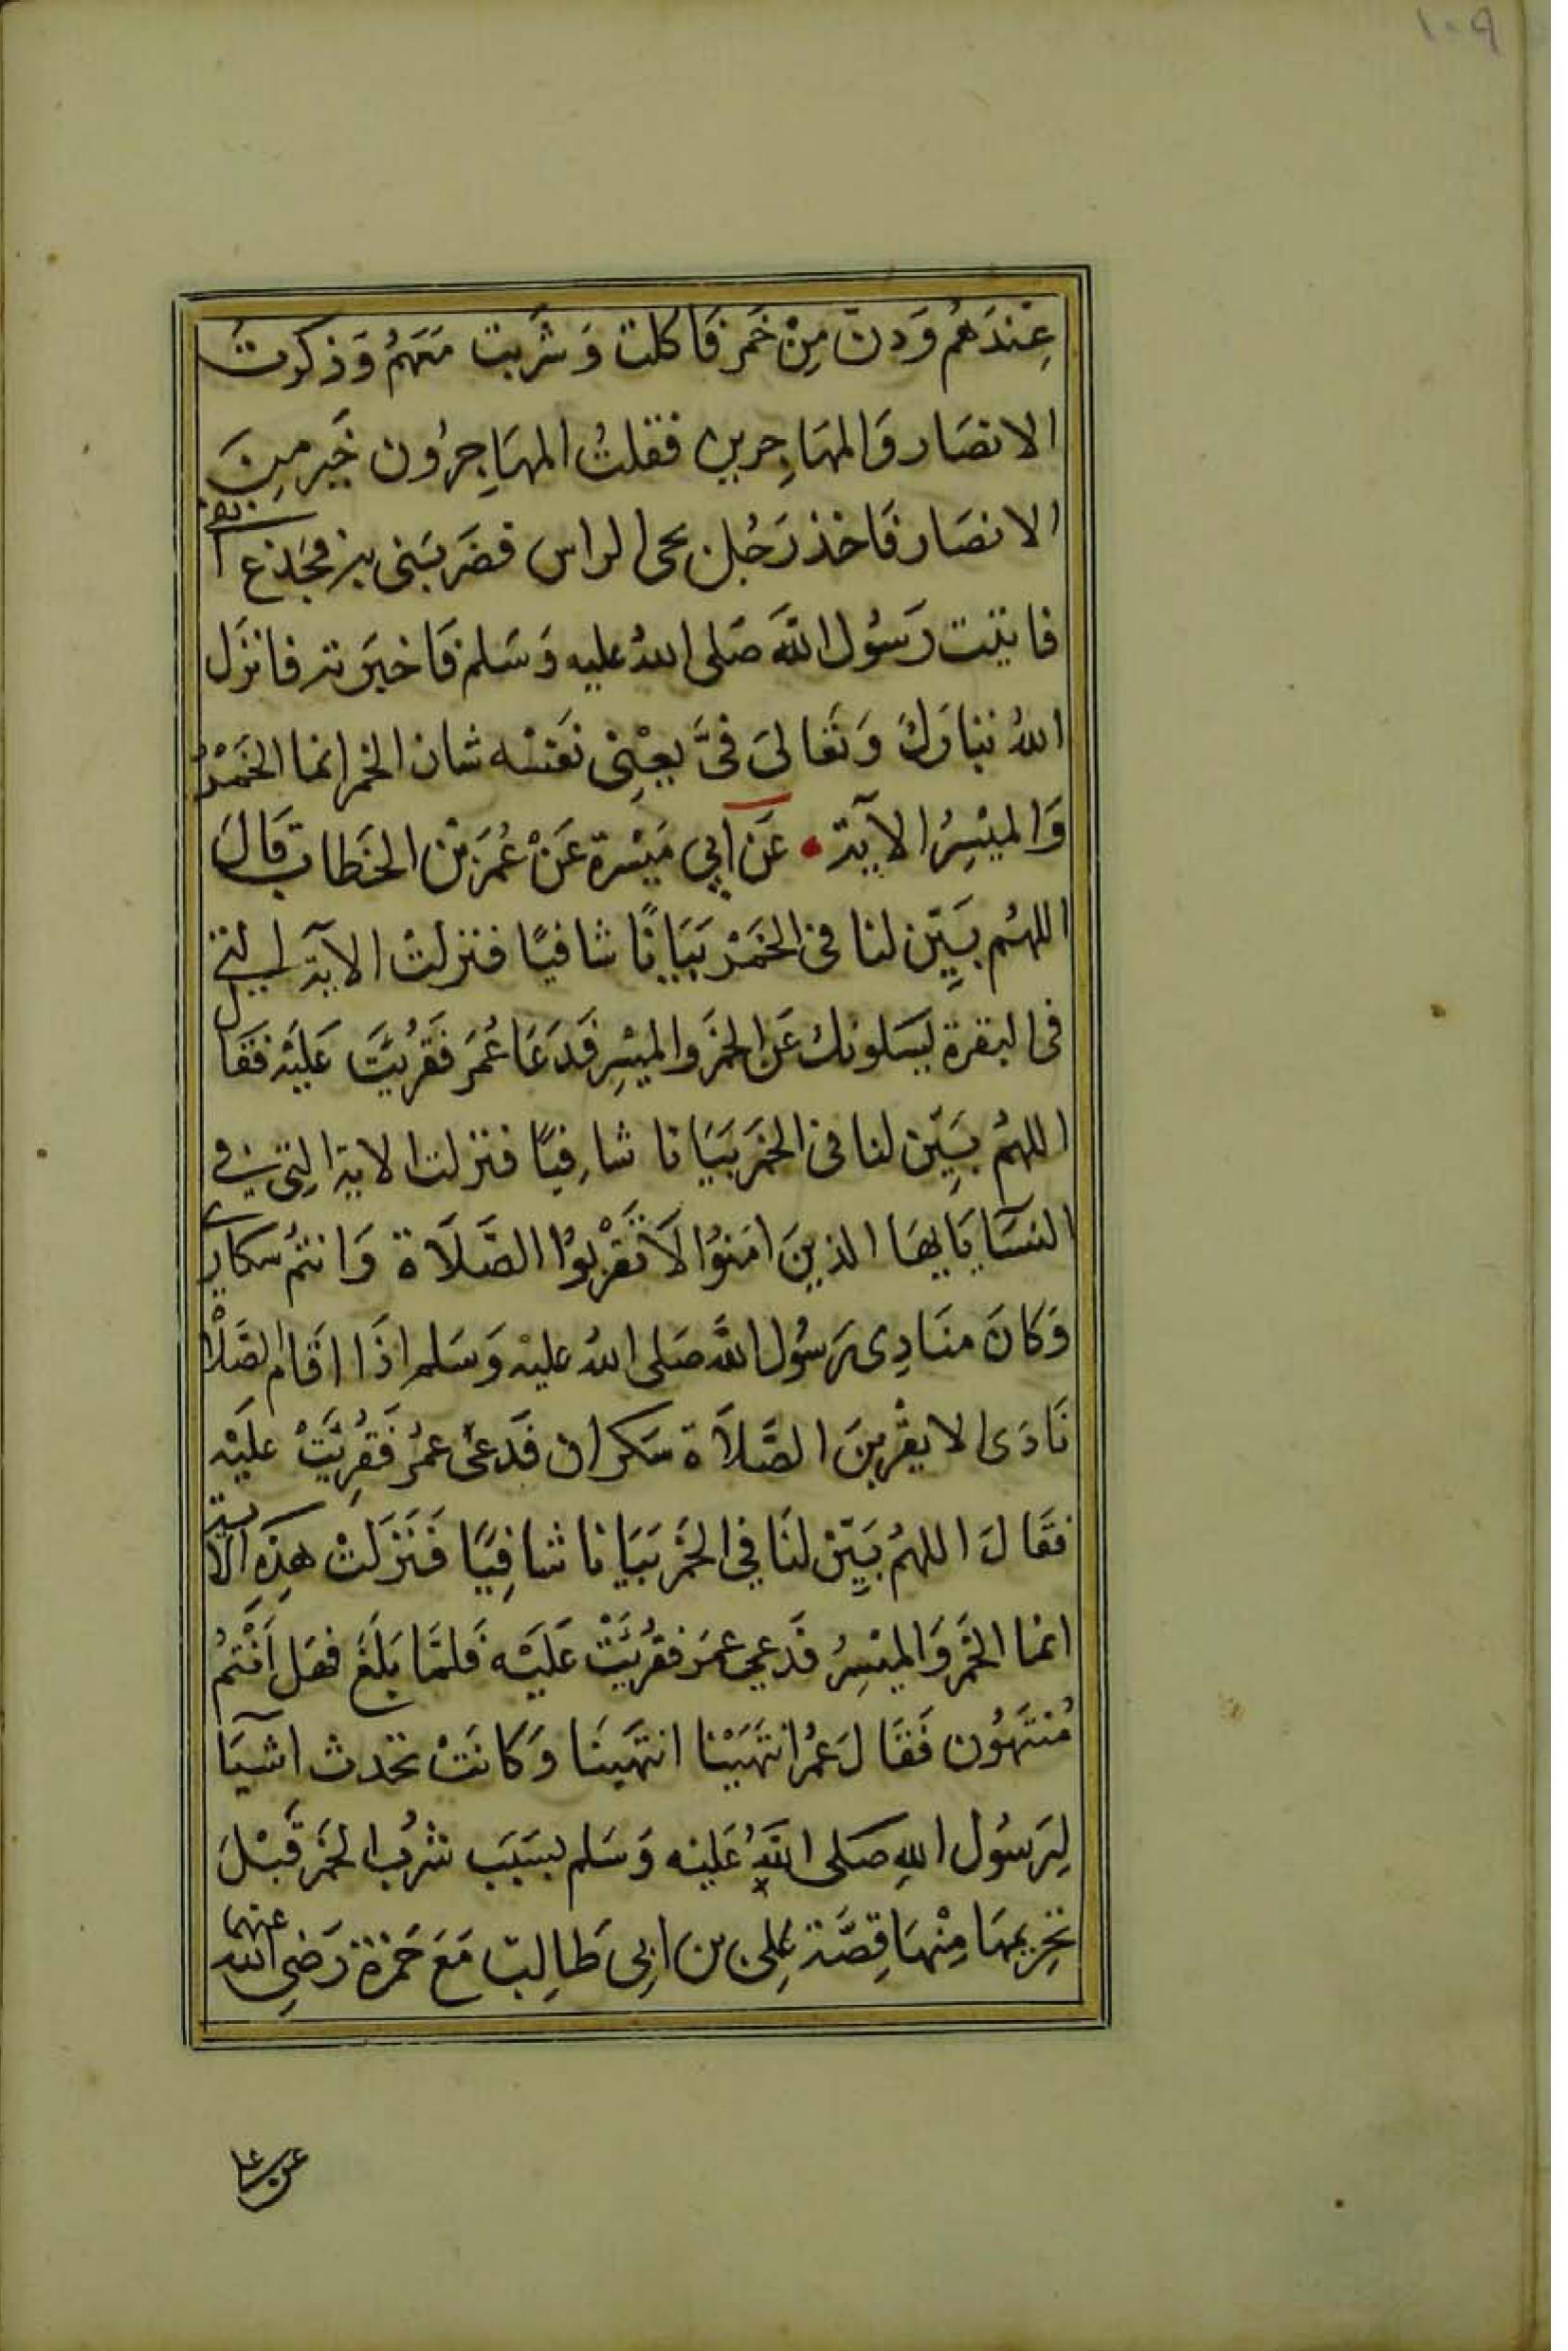 ١٠٩
عِنْدَهُم وَدن مِنْ خَمر فَاكلت وَشَربت مَعَهُم وَذكرتُ
الانصَار وَالمهَاجرين فقلتُ المهَاجِرُون خَير مِنَ
الانصَار فَاخذ رَجُل لحى الراس فضَربَنى به فجَذع انفى
فاتيت رَسُول اللهَ صَلى اللهُ عليه وَسَلم فَاخبَرته فانزَل
اللهُ تبَارَكَ وَتَعَالىَ فىَّ يعْنِى نَفسْه شان الخمر انما الخَمْرُ
وَالميْسِرُ الآية • عَن اَبِي مَيْسرة عَنْ عُمَرَ بْن الخَطاب قَالَ
اللهُم بَيِّن لنا فى الخَمْر بَيَانًا شافيًا فنزلتْ الآية التى
فى البقرة يَسَلونك عَن الخمَر والميْسِر فَدَعَا عُمَر فَقُريَت عَلَيْه فقَال
اللهُم بَيِّن لنا فى الخمَر بَيَانا شافِيًا فنزلت الاية التِى في
النسَآ يَايهَا الذينَ امَنوُا لاَ تَقْربُوا الصَّلاَة وَانتمُ سكارى
وَكانَ منَادِى رَسُول اللهَ صَلى اللهُ عليْه وَسَلم اذَا اقَام الصَلاْة
نَادَى الا يقْربنَ الصَّلاَة سَكران فَدَعىَ عمُر فَقُرِيَتْ عليَه
فقَالَ اللهُم بَيِّنْ لنَا فِي الخمَر بَيَانا شافِيًا فَنَزَلَتْ هذِهِ الاية
انما الخَمر وَالميْسِرُ فَدعي عمَر فقُرِيَتْ عَلَيْه فَلمَّا بَلَغَ فهَل اَنْتمُ
مُنْتَهُون فَقَالَ عمُر انتَهَيْنا انتَهَينَا وَكانَتْ تحَدث اشيَآ
لِرَسُول اللهِ صَلى اللهَُ عَليْه وَسَلم بسَبَب شرْب الخمَر قَبْلَ
تحَرِيمهَا مِنْهَا قِصَّة عَلِى بن ابِى طَالِب مَعَ حَمزة رَضِى اللهُ عنهما
عن على